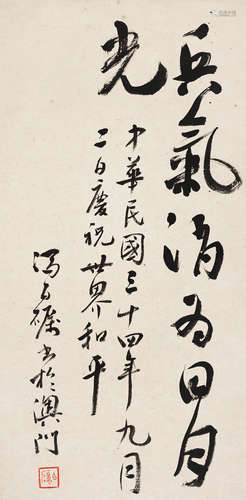 兵氣消為日月
光
中華民國三十四年九月
二日慶祝世界和平
馮百礪書於澳門